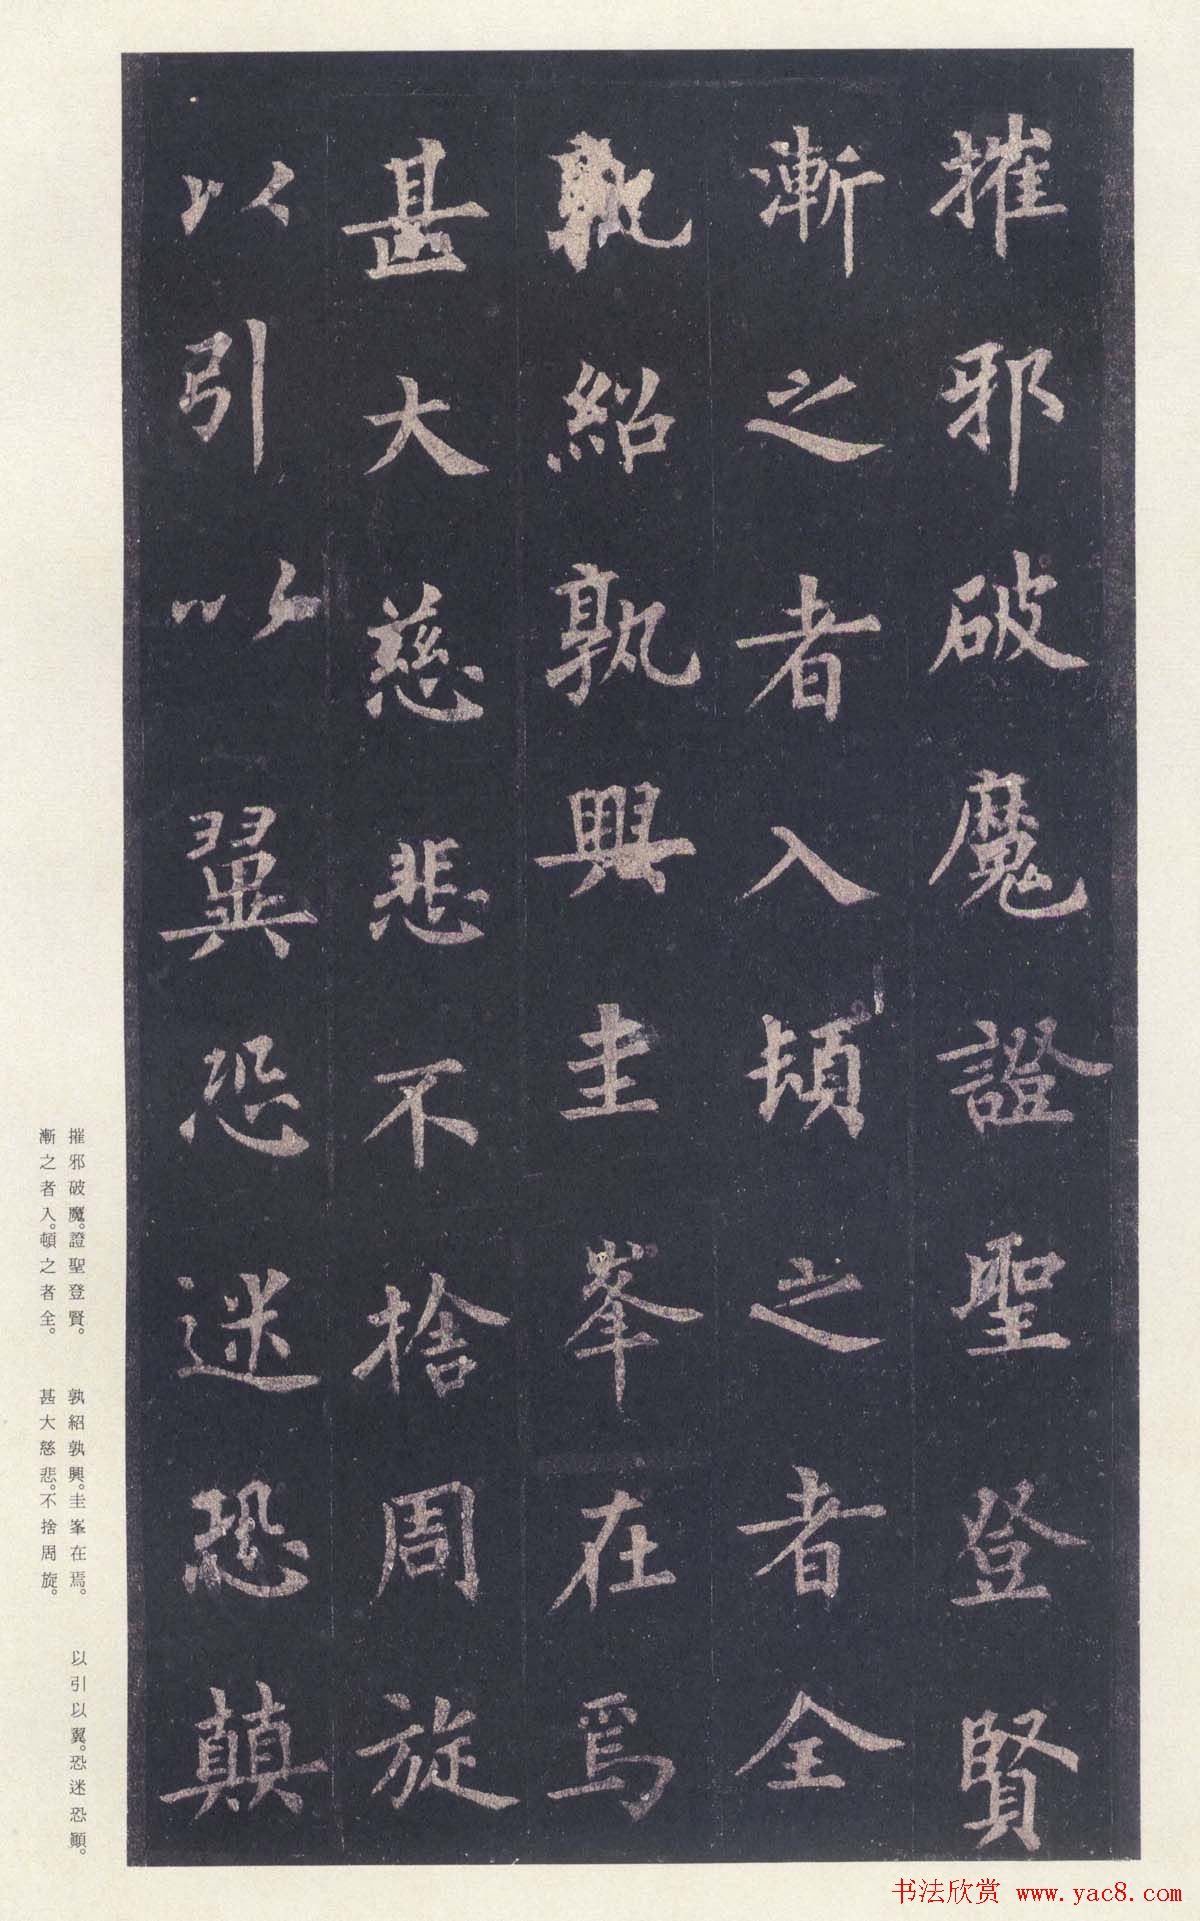 摧邪破魔證聖登賢
漸之者入頓之者全
孰紹孰興圭峯在焉
甚大慈悲不捨周旋
以引以翼恐迷恐顛
摧邪破魔。證聖登賢。
漸之者入。頓之者全。
孰紹孰興。圭峯在焉。
甚大慈悲。不捨周旋。
以引以翼。恐迷恐顚。
书法欣赏 www.yac8.com